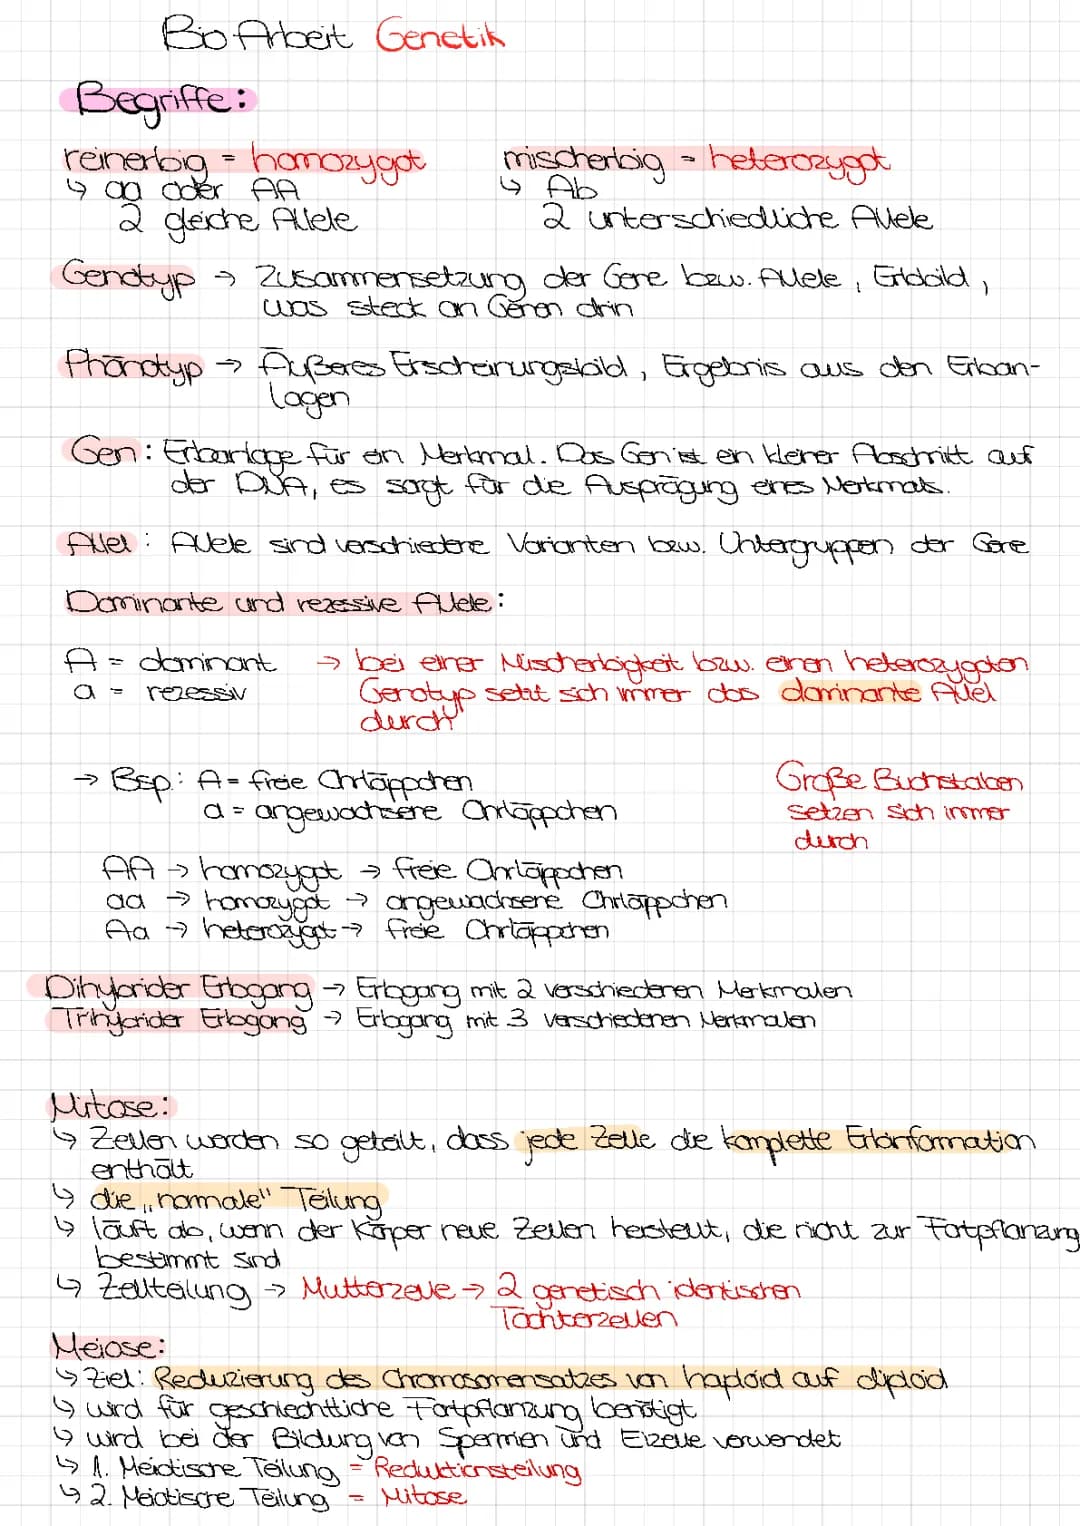 Bio Arbeit Genetik
Begriffe:
reinerbig = homozygot
↳ aa oder AA
2 gleiche Allele
mischerbig = heterozygot
↳ Ab
2 unterschiedliche Allele
Genotyp → Zusammensetzung der Gene bzw. Allele, Erbbild,
was steck an Genen drin
Phänotyp → Äußeres Erscheinungsbild, Ergebnis aus den Erban-
lagen
Gen: Erbanlage für ein Merkmal. Das Gen ist ein kleiner Abschnitt auf
der DNA, es sorgt für die Ausprägung eines Merkmals.
Allel: Allele sind verschiedene Varianten bzw. Untergruppen der Gene
Dominante und rezessive Allele:
A = dominant
a = rezessiv
→ bei einer Mischerbigkeit bzw. einen heterozygoten
Genotyp setzt sich immer das dominante Allel
durch
→ Bsp.: A = freie Ohrläppchen
a = angewachsene Ohrläppchen
Große Buchstaben
setzen sich immer
durch
AA → homozygot → freie Ohrläppchen
aa → homozygot → angewachsene Ohrläppchen
Aa → heterozygot → freie Ohrläppchen
Dihybrider Erbgang → Erbgang mit 2 verschiedenen Merkmalen
Trihybrider Erbgang → Erbgang mit 3 verschiedenen Merkmalen
Mitose:
↳ Zellen werden so geteilt, dass jede Zelle die komplette Erbinformation
enthält
↳ die „normale" Teilung
↳ läuft ab, wenn der Körper neue Zellen herstellt, die nicht zur Fortpflanzung
bestimmt sind
↳ Zellteilung → Mutterzelle → 2 genetisch identischen
Tochterzellen
Meiose:
↳ Ziel: Reduzierung des Chromosomensatzes von haploid auf diploid
↳ wird für geschlechtliche Fortpflanzung benötigt
↳ wird bei der Bildung von Spermien und Eizelle verwendet
↳ 1. Meiotische Teilung = Reduktionsteilung
↳ 2. Meiotische Teilung = Mitose